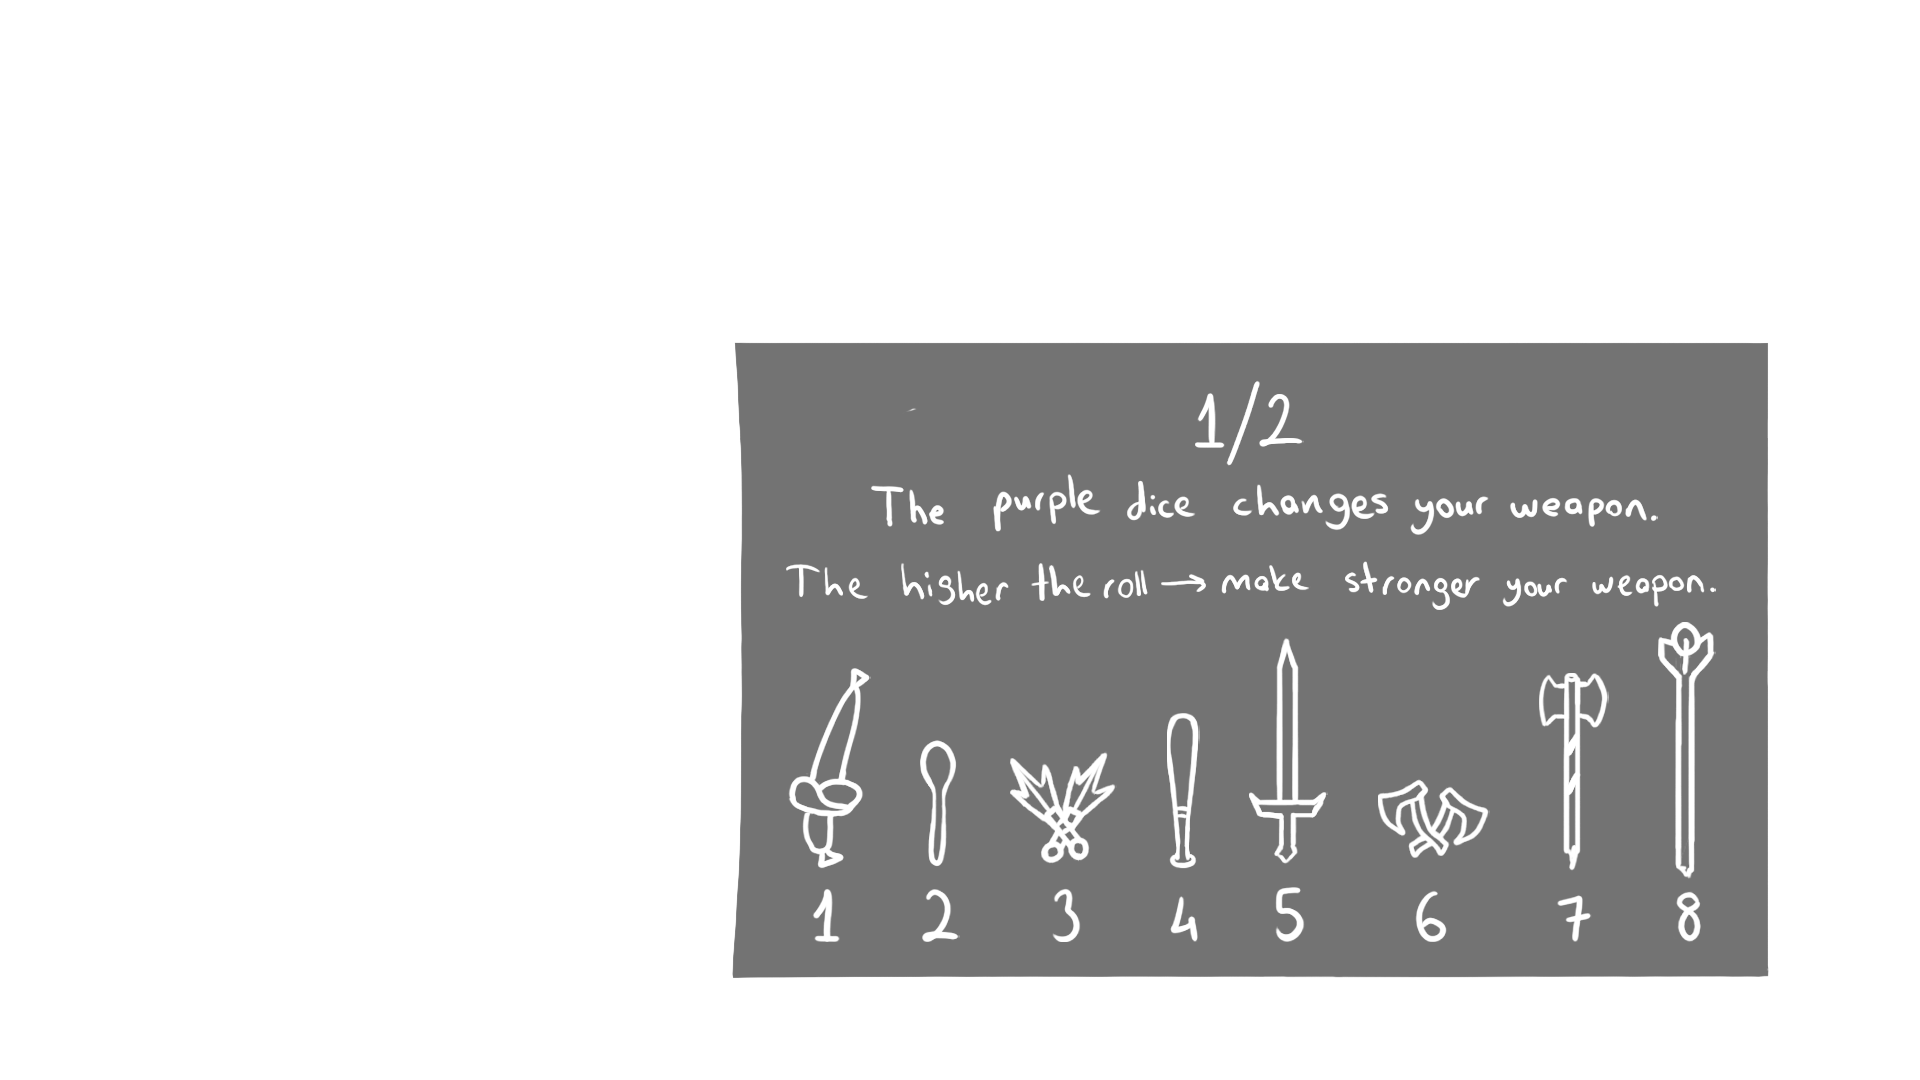 1/2
The purple dice changes your weapon.
The higher the roll → make stronger your weapon.
1 2 3 4 5 6 7 8